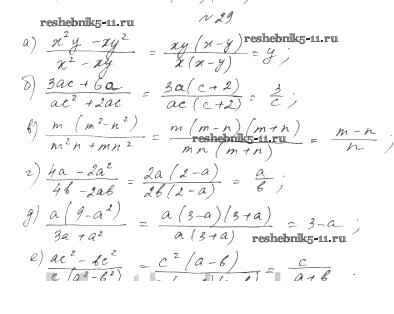 № 29
reshebnik5-11.ru
а) (x²y - xy²)/(x² - xy) = xy(x-y)/x(x-y) = y; reshebnik5-11.ru
б) (3ac + 6a)/(ac² + 2ac) = 3a(c+2)/ac(c+2) = 3/c;
в) m(m²-n²)/(m²n + mn²) = m(m-n)(m+n)/mn(m+n) = (m-n)/n; reshebnik5-11.ru
г) (4a - 2a²)/(4b - 2ab) = 2a(2-a)/2b(2-a) = a/b;
д) a(9-a²)/(3a + a²) = a(3-a)(3+a)/a(3+a) = 3-a;
reshebnik5-11.ru
е) (ac² - bc²)/c(a²-b²) = c²(a-b)/ = c/(a+b).